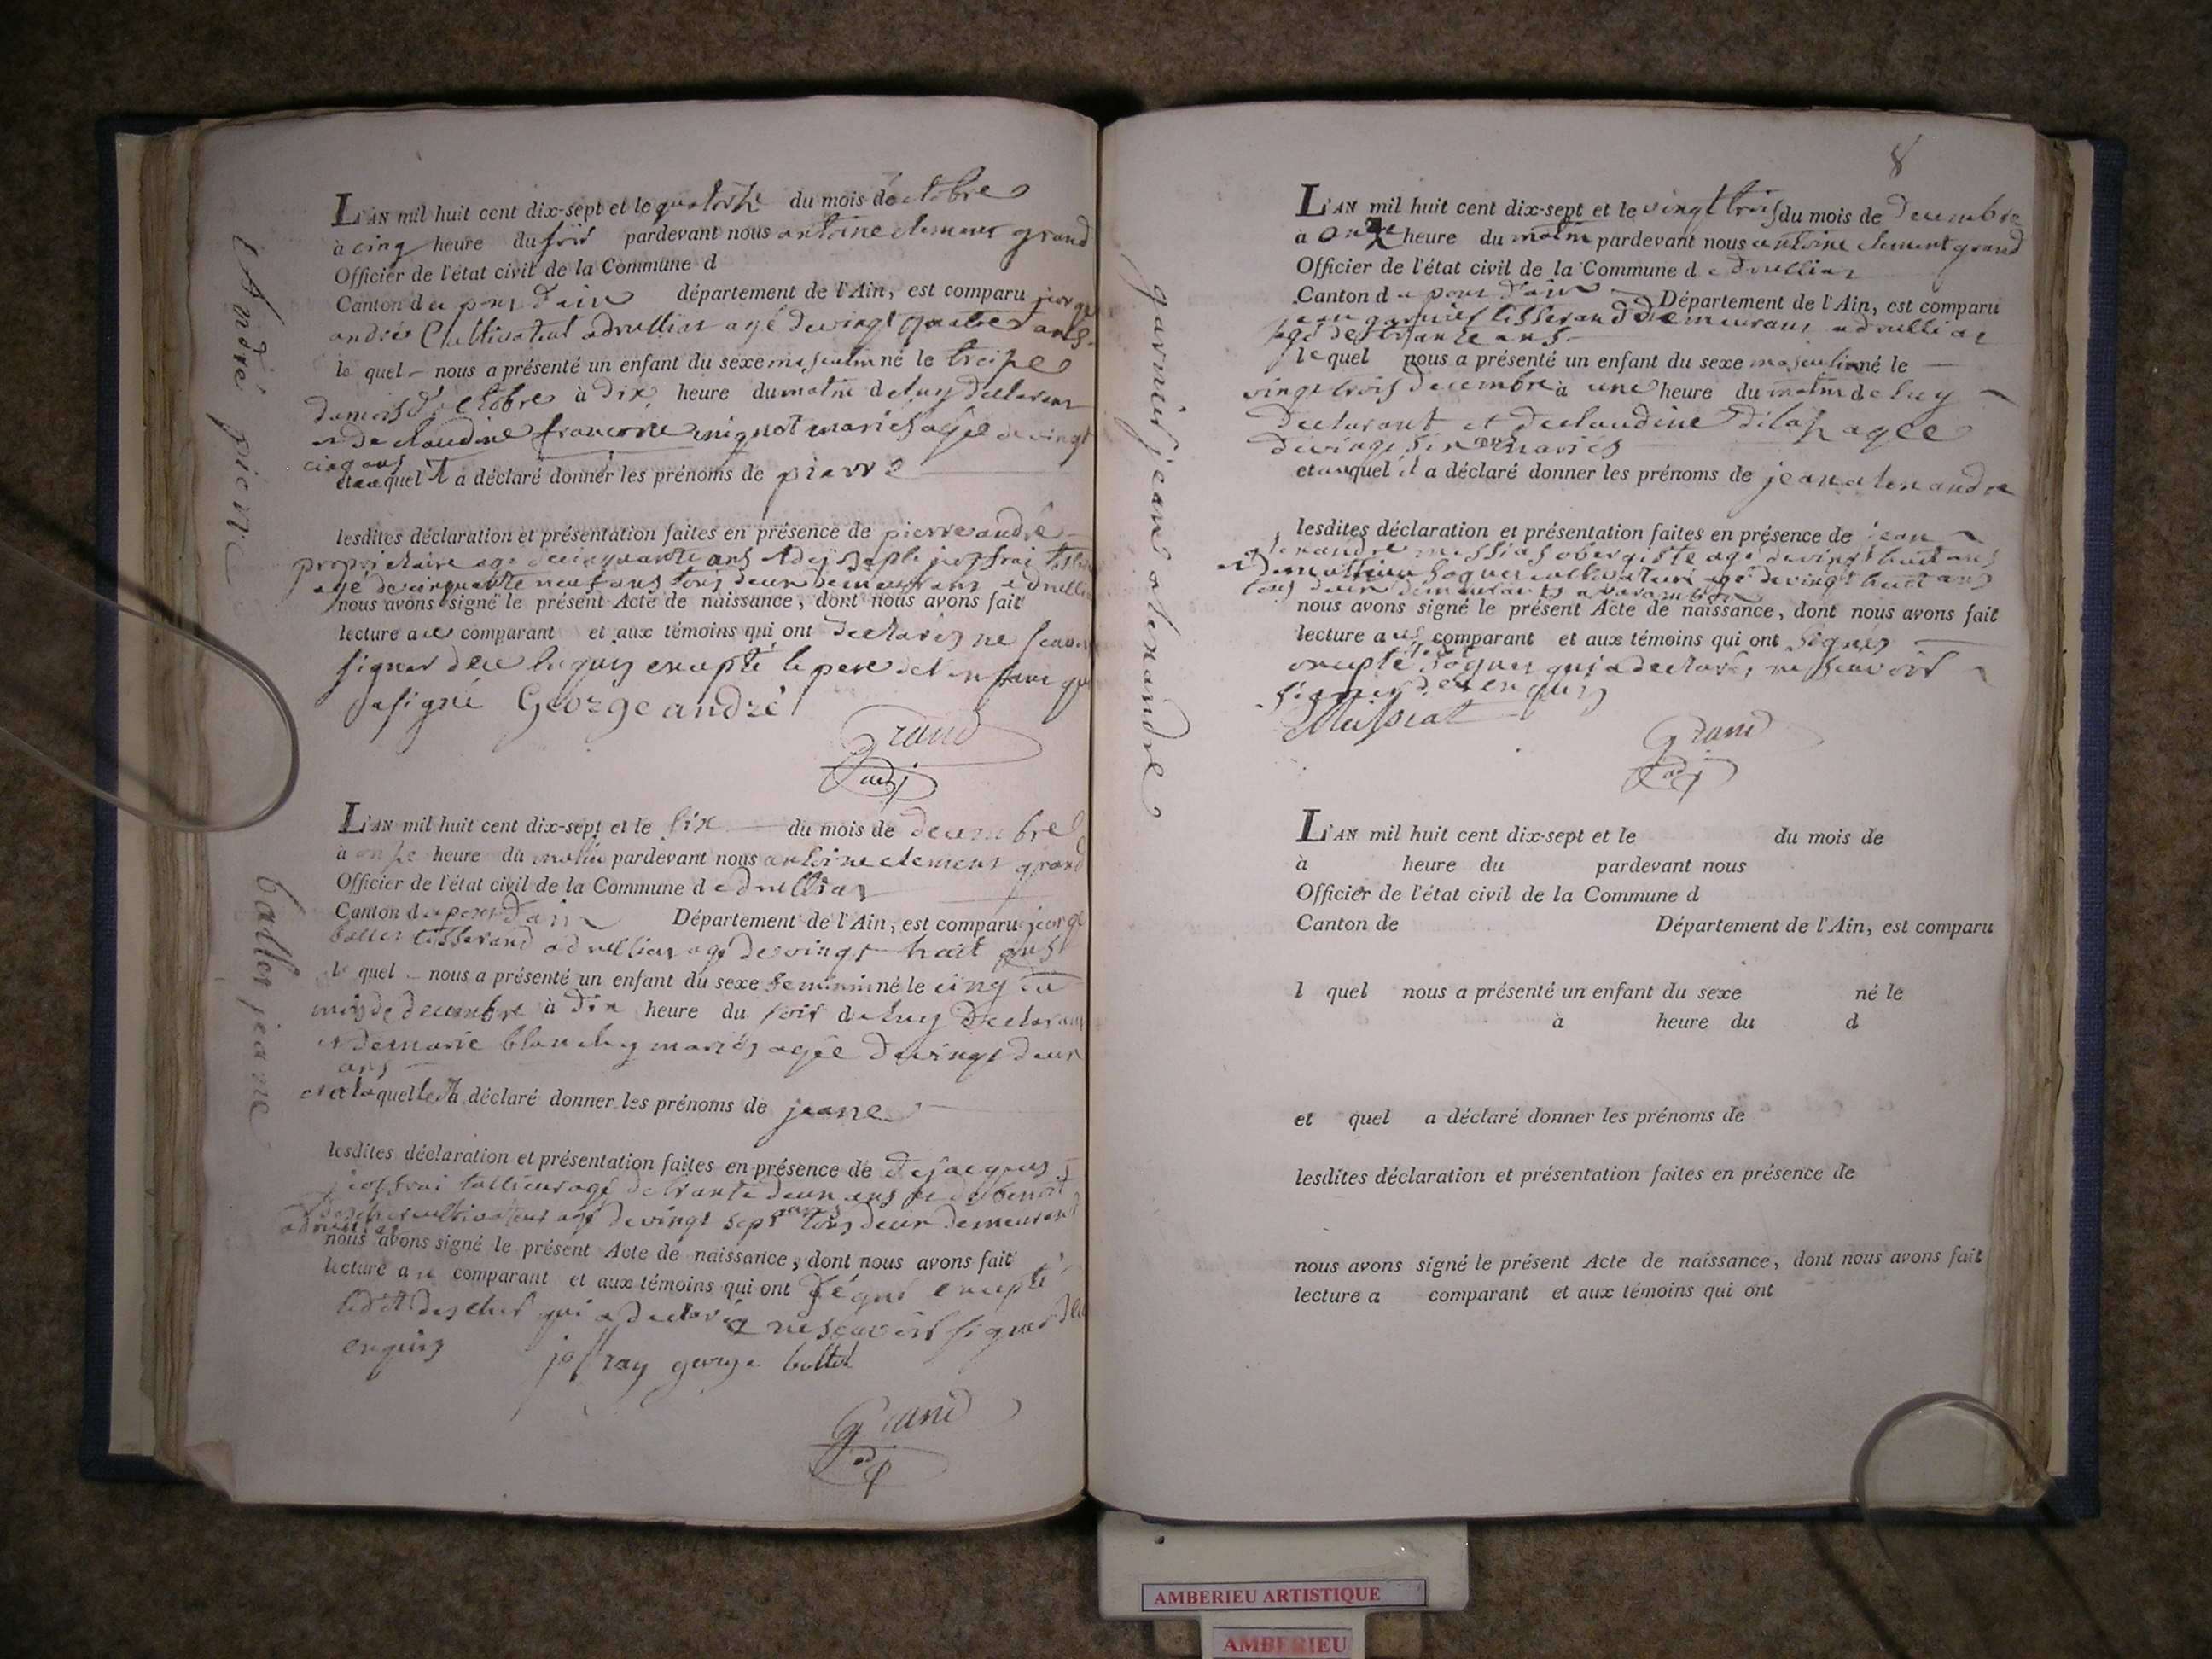 André pierre
L'AN mil huit cent dix-sept et le quatorze du mois doctobre
à cinq heure du soir pardevant nous antoine clement grand
Officier de l'état civil de la Commune d
Canton du pont dain département de l'Ain, est comparu jeorge
andrée Cultivateur adruillian agé devingt quatre ans
le quel nous a présenté un enfant du sexe masculin né le treize
dumois doctobre à dix heure du matin deluy declarant
et de claudine francoise mignot mariés agée devingt
cinq ans
et auquel il a déclaré donner les prénoms de pierre
lesdites déclaration et présentation faites en présence de pierre andrê
proprietaire agé decinquante ans et de
agé decinquante neuf ans tous deux demeurans adruillia
nous avons signé le présent Acte de naissance, dont nous avons fait
lecture au comparant et aux témoins qui ont declarés ne scavoir
signer de ce enquis excepté le pere delenfant qui
asigné George andré
Grand
adj
ballet jeanne
L'AN mil huit cent dix-sept et le six du mois de decembre
à onze heure du matin pardevant nous antoine clement grand
Officier de l'état civil de la Commune d edruillian
Canton du pont Dain Département de l'Ain, est comparu jeorge
ballet tisserand adruillian agé devingt huit ans
le quel nous a présenté un enfant du sexe feminin né le cinq du
mois de decembre à dix heure du soir deluy declarant
et demarie blanchy mariés agée devingt deux
ans
et a laquelle il a déclaré donner les prénoms de jeane
lesdites déclaration et présentation faites en présence de dejacques
joffrai tallieur agé detrante deux ans et de benoit
descher cultivateur agé devingt sept ans tous deux demeurant
adruillat
nous avons signé le présent Acte de naissance, dont nous avons fait
lecture au comparant et aux témoins qui ont signé excepté
ledit descher qui a declaré nescavoir signer de ce
enquis joffray george ballet
Grand
adj
8
garnier jean alexandre
L'AN mil huit cent dix-sept et le vingt trois du mois de decembre
à onze heure du matin pardevant nous antoine clement grand
Officier de l'état civil de la Commune d edruillian
Canton du pont d'ain Département de l'Ain, est comparu
jean garnier tisserand demeurant adruilliat
agé detrante ans
le quel nous a présenté un enfant du sexe masculin né le
vingt trois decembre à une heure du matin de luy
declarant et declaudine dilas agée
devingt six ans mariés
et auquel il a déclaré donner les prénoms de jean alexandre
lesdites déclaration et présentation faites en présence de jean
alexandre messiat obergiste agé devingt huit ans
et de mathieu soquet cultivateur agé devingt huit ans
tous deux demeurants
nous avons signé le présent Acte de naissance, dont nous avons fait
lecture aux comparant et aux témoins qui ont signés
excepté ledit soquet qui a declaré ne scavoir
signer de ce enquis
Messiat
Grand
adj
L'AN mil huit cent dix-sept et le du mois de
à heure du pardevant nous
Officier de l'état civil de la Commune d
Canton de Département de l'Ain, est comparu
l quel nous a présenté un enfant du sexe né le
à heure du d
et quel a déclaré donner les prénoms de
lesdites déclaration et présentation faites en présence de
nous avons signé le présent Acte de naissance, dont nous avons fait
lecture a comparant et aux témoins qui ont
AMBERIEU ARTISTIQUE
AMBERIEU